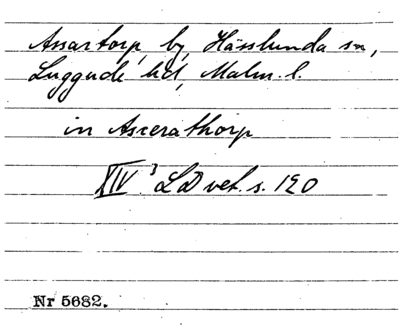 Assartorp, by, Hässlunda sn,
Luggude hd, Malm. l.
in Ascerathorp
XIV 3 LD vet. s. 120
Nr 5682.